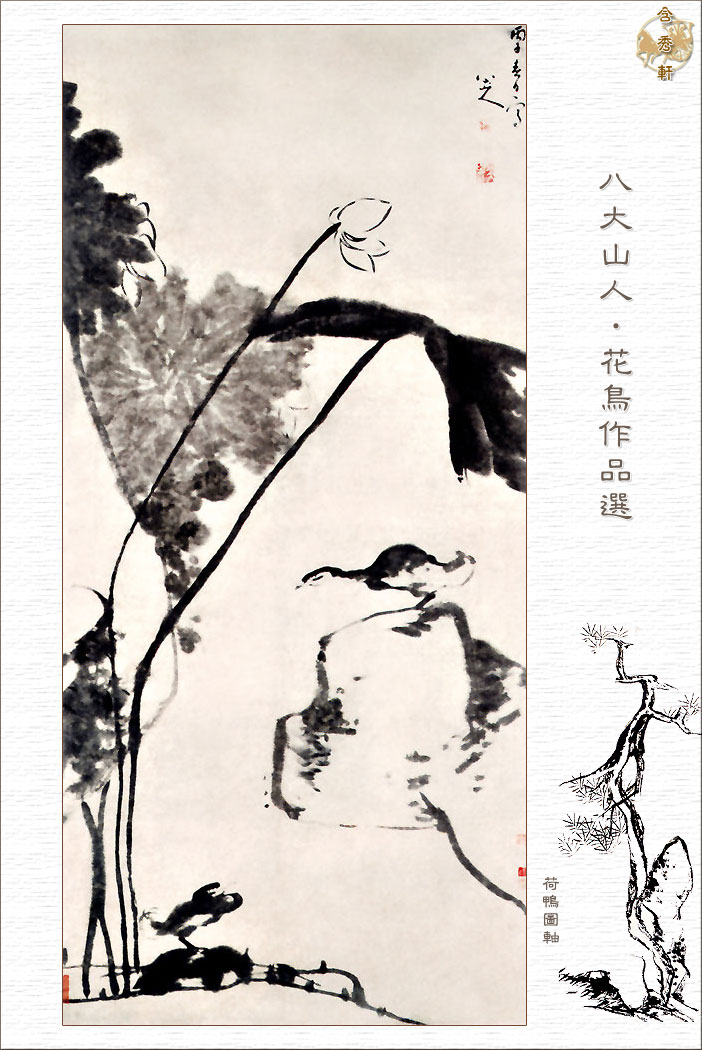 含秀軒
八大山人·花鳥作品選
丙子春日寫
八大山人
荷鴨圖軸